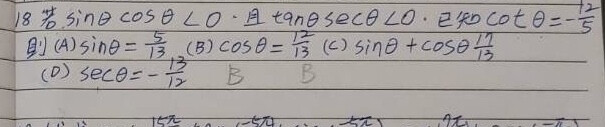 18 若 sinθ cosθ <0 . 且 tanθ secθ <0 . 已知 cotθ = -12/5
則 (A) sinθ = 5/13 (B) cosθ = 12/13 (C) sinθ + cosθ 17/13
(D) secθ = -13/12 B B